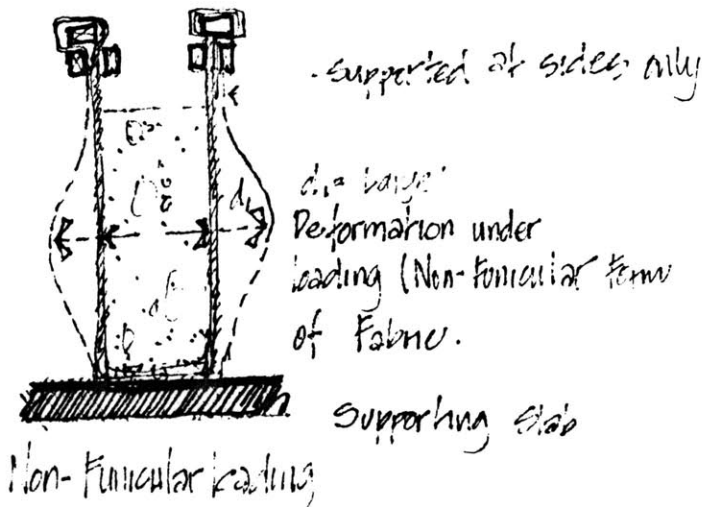 - supported at sides only
d₁ = Large
Deformation under
loading (Non-Funicular form
of Fabric.
Supporting Slab
d₁
Non-Funicular loading